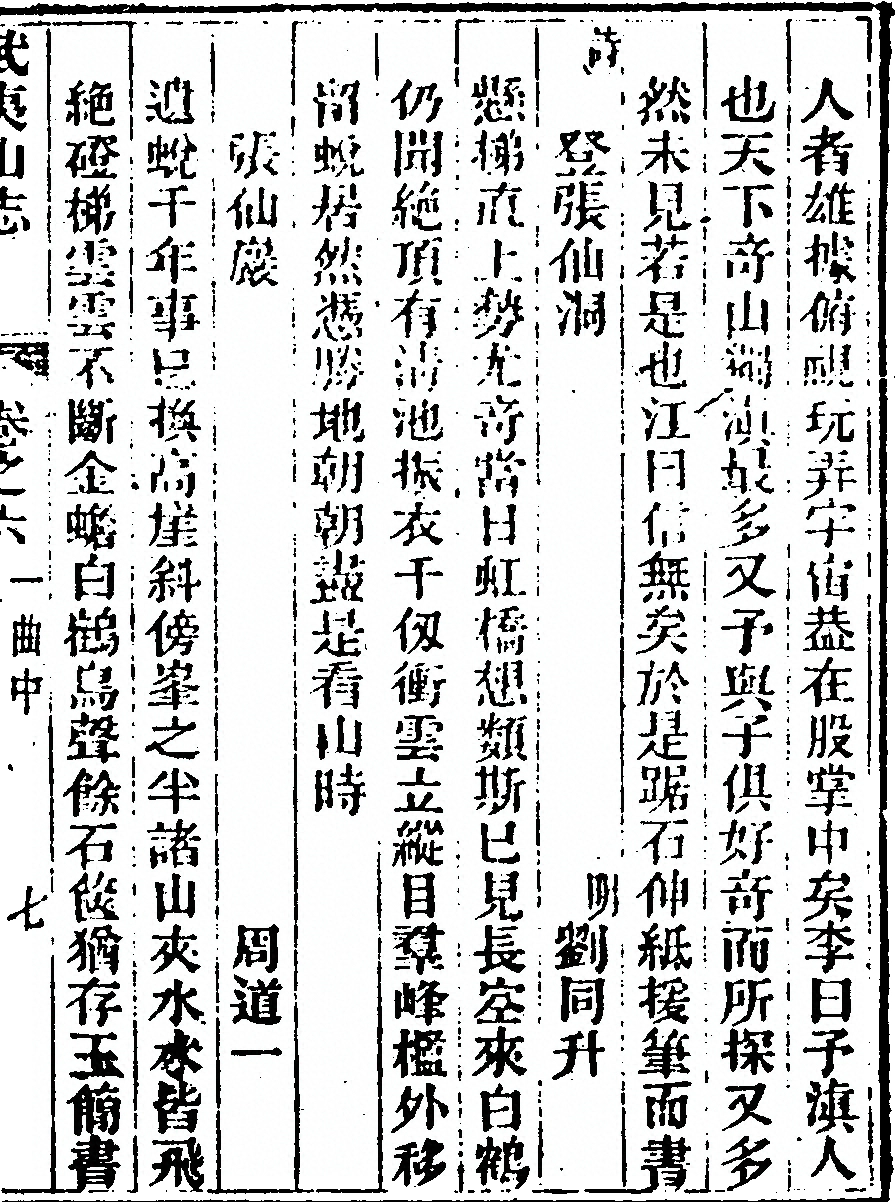 人者雄據俯視玩弄宇宙葢在股掌中矣李曰予滇人
也天下奇山湖滇最多又予與子俱好奇而所探又多
然未見若是也江曰信無矣於是踞石伸紙援筆而書
詩
登張仙洞　明劉同升
懸梯直上勢尤奇當日虹橋想類斯已見長空來白鶴
仍開絶頂有淸池振衣千仭衝雲立縱目羣峰檻外移
留蛻居然憑勝地朝朝盡是看山時
張仙巖　周道一
遺蛻千年事已換高崖斜傍峯之半諸山夾水水皆飛
絶磴梯雲雲不斷金蟾白鶴鳥聲餘石篋猶存玉簡書
武夷山志　卷之六　一曲中　七